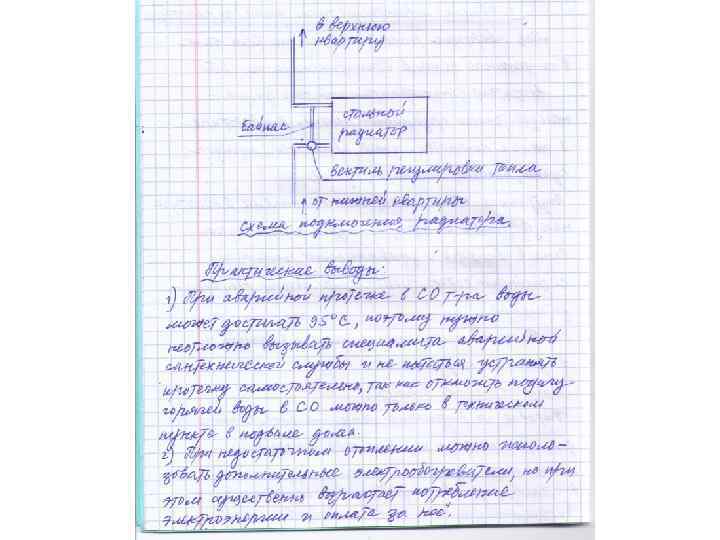 в верхнюю
квартиру
стольной
радиатор
байпас
вентиль регулировки тепла
от нижней квартиры
схема подключения радиатора.
Практические выводы:
1) При аварийной протечке в СО т-ра воды
может достигать 95°С, поэтому нужно
неотложно вызывать специалиста аварийной
сантехнической службы и не пытаться устранять
протечку самостоятельно, так как отключить подачу
горячей воды в СО можно только в техническом
пункте в подвале дома.
2) При недостаточном отоплении можно исполь-
зовать дополнительные электрообогреватели, но при
этом существенно возрастает потребление
электроэнергии и оплата за неё.